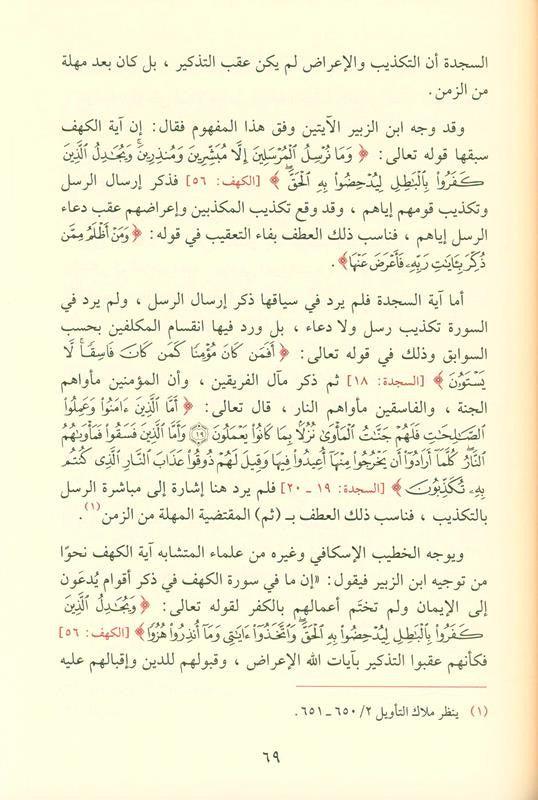 السجدة أن التكذيب والإعراض لم يكن عقب التذكير ، بل كان بعد مهلة
من الزمن .
وقد وجه ابن الزبير الآيتين وفق هذا المفهوم فقال: إن آية الكهف
سبقها قوله تعالى: ﴿ وَمَا نُرْسِلُ ٱلْمُرْسَلِينَ إِلَّا مُبَشِّرِينَ وَمُنذِرِينَۚ وَيُجَٰدِلُ ٱلَّذِينَ
كَفَرُوا۟ بِٱلْبَٰطِلِ لِيُدْحِضُوا۟ بِهِ ٱلْحَقَّۖ ﴾ [الكهف: ٥٦] فذكر إرسال الرسل
وتكذيب قومهم إياهم ، وقد وقع تكذيب المكذبين وإعراضهم عقب دعاء
الرسل إياهم ، فناسب ذلك العطف بفاء التعقيب في قوله: ﴿وَمَنْ أَظْلَمُ مِمَّن
ذُكِّرَ بِـَٔايَٰتِ رَبِّهِۦ فَأَعْرَضَ عَنْهَا﴾ .
أما آية السجدة فلم يرد في سياقها ذكر إرسال الرسل ، ولم يرد في
السورة تكذيب رسل ولا دعاء ، بل ورد فيها انقسام المكلفين بحسب
السوابق وذلك في قوله تعالى: ﴿ أَفَمَن كَانَ مُؤْمِنًا كَمَن كَانَ فَاسِقًاۚ لَّا
يَسْتَوُۥنَ ﴾ [السجدة: ١٨] ثم ذكر مآل الفريقين ، وأن المؤمنين مأواهم
الجنة ، والفاسقين مأواهم النار ، قال تعالى: ﴿ أَمَّا ٱلَّذِينَ ءَامَنُوا۟ وَعَمِلُوا۟
ٱلصَّٰلِحَٰتِ فَلَهُمْ جَنَّٰتُ ٱلْمَأْوَىٰ نُزُلًۢا بِمَا كَانُوا۟ يَعْمَلُونَ ۝١٩ وَأَمَّا ٱلَّذِينَ فَسَقُوا۟ فَمَأْوَىٰهُمُ
ٱلنَّارُۖ كُلَّمَآ أَرَادُوٓا۟ أَن يَخْرُجُوا۟ مِنْهَآ أُعِيدُوا۟ فِيهَا وَقِيلَ لَهُمْ ذُوقُوا۟ عَذَابَ ٱلنَّارِ ٱلَّذِى كُنتُم
بِهِۦ تُكَذِّبُونَ ﴾ [السجدة: ١٩ ـ ٢٠] فلم يرد هنا إشارة إلى مباشرة الرسل
بالتكذيب ، فناسب ذلك العطف بـ (ثم) المقتضية المهلة من الزمن(١).
ويوجه الخطيب الإسكافي وغيره من علماء المتشابه آية الكهف نحوًا
من توجيه ابن الزبير فيقول: «إن ما في سورة الكهف في ذكر أقوام يُدعَون
إلى الإيمان ولم تختَم أعمالهم بالكفر لقوله تعالى: ﴿ وَيُجَٰدِلُ ٱلَّذِينَ
كَفَرُوا۟ بِٱلْبَٰطِلِ لِيُدْحِضُوا۟ بِهِ ٱلْحَقَّۖ وَٱتَّخَذُوٓا۟ ءَايَٰتِى وَمَآ أُنذِرُوا۟ هُزُوًا﴾ [الكهف: ٥٦]
فكأنهم عقبوا التذكير بآيات الله الإعراض ، وقبولهم للدين وإقبالهم عليه
(١) ينظر ملاك التأويل ٢/ ٦٥٠ ـ ٦٥١ .
٦٩